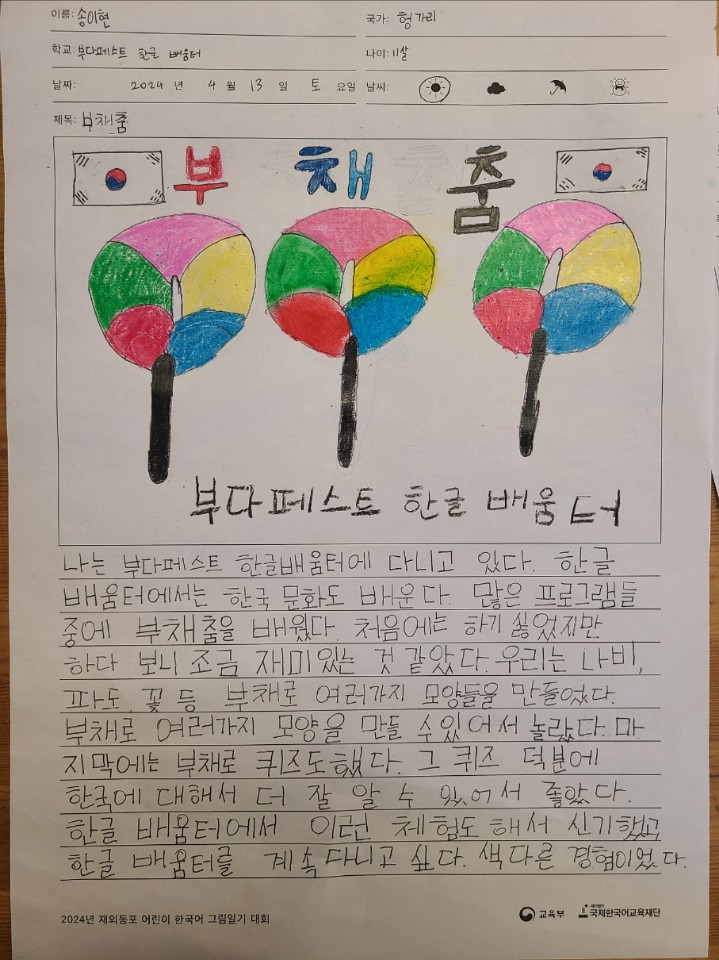 이름: 송이현 국가: 헝가리
학교: 부다페스트 한글 배움터 나이: 11살
날짜: 2024 년 4 월 13 일 토 요일 날씨:
제목: 부채춤
부 채 춤
부다페스트 한글 배움터
나는 부다페스트 한글배움터에 다니고 있다. 한글
배움터에서는 한국 문화도 배운다. 많은 프로그램들
중에 부채춤을 배웠다. 처음에는 하기 싫었지만
하다 보니 조금 재미있는 것 같았다. 우리는 나비,
파도, 꽃 등 부채로 여러가지 모양들을 만들었다.
부채로 여러가지 모양을 만들 수 있어서 놀랐다. 마
지막에는 부채로 퀴즈도 했다. 그 퀴즈 덕분에
한국에 대해서 더 잘 알 수 있어서 좋았다.
한글 배움터에서 이런 체험도 해서 신기했고
한글 배움터를 계속 다니고 싶다. 색다른 경험이었다.
2024년 재외동포 어린이 한국어 그림일기 대회 교육부 국제한국어교육재단